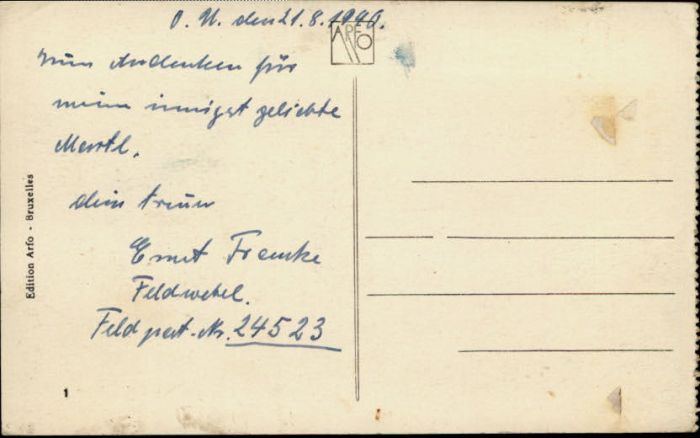 O. U. den 21.8.1940.
ARFO
Zum Andenken für
meine innigst geliebte
dein treuer
Ernst Francke
Feldwebel.
Feldpost-Nr. 24523
Edition Arfo - Bruxelles
1